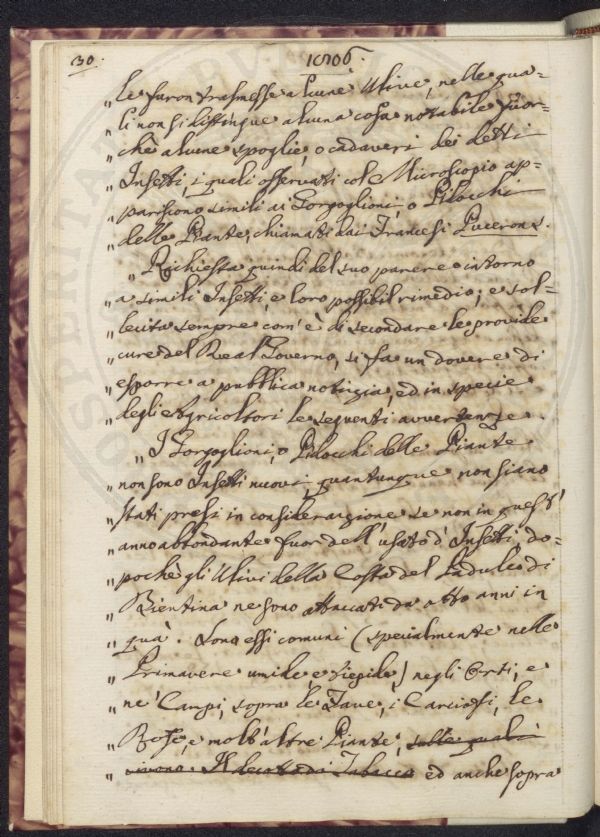 30.
1806
„ le furon trasmesse alcune Ulive, nelle qua-
„ li non si distingue alcuna cosa notabile fuor-
„ chè alcune spoglie, o cadaveri dei detti
„ Insetti, i quali osservati col Microscopio ap-
„ pariscono simili ai Gorgoglioni, o Pilocchi
„ delle Piante, chiamati dai Francesi Pucerons.
„ Richiesta quindi del suo parere intorno
„ a simili Insetti, e loro possibil rimedio; e sol-
„ lecita sempre com' è di secondare le provide
„ cure del Real Governo, si fa un dovere di
„ esporre a pubblica notizia, ed in specie
„ degli Agricoltori le seguenti avvertenze.
„ I Gorgoglioni, o Pilocchi delle Piante
„ non sono Insetti nuovi, quantunque non siano
„ stati presi in considerazione se non in quest'
„ anno abbondante fuor dell'usato d' Insetti, do-
„ pochè gli Ulivi della Costa del Padule di
„ Bientina ne sono attaccati da otto anni in
„ quà. Sono essi comuni (specialmente nelle
„ Primavere umide, e tiepide) negli Orti, e
„ ne' Campi, sopra le Fave, i Carciofi, le
„ Rose, e molt'altre Piante, sulle quali
„ vivono. Il decotto di Tabacco ed anche sopra